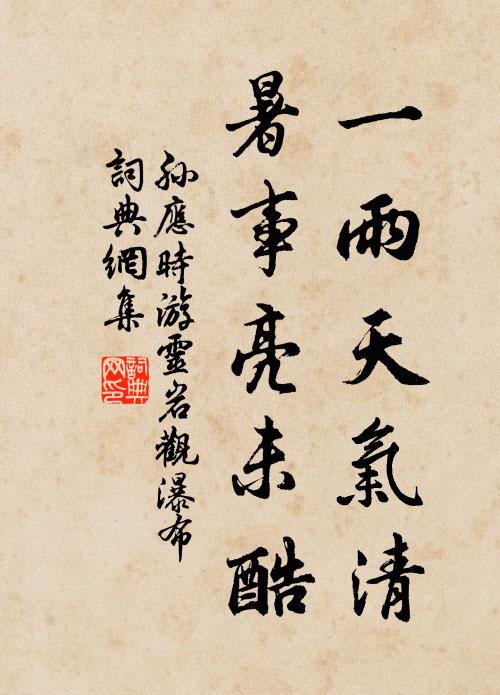 一雨天氣清
暑事亮未酷
孫應時游靈岩觀瀑布
詞典網集
詞典網印